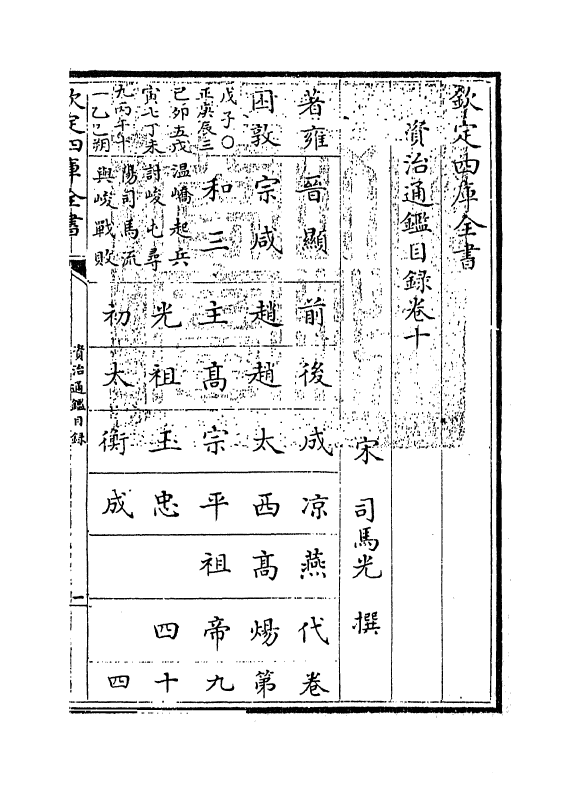 欽定四庫全書
資治通鑑目録卷十
宋 司馬光 撰
著雍 晉顯 前 後 成 凉 燕 代 卷
困敦 宗咸 趙 趙 太 西 高 煬 第
戊子〇
正庚辰三
和三 主 高 宗 平 祖 帝 九
己卯五戊
寅七丁未
温嶠起兵
討峻屯尋
光 祖 玉 忠 四 十
九丙午十
一乙巳朔
陽司馬流
與峻戰敗
初 太 衡 成 四
欽定四庫全書
資治通鑑目録
一